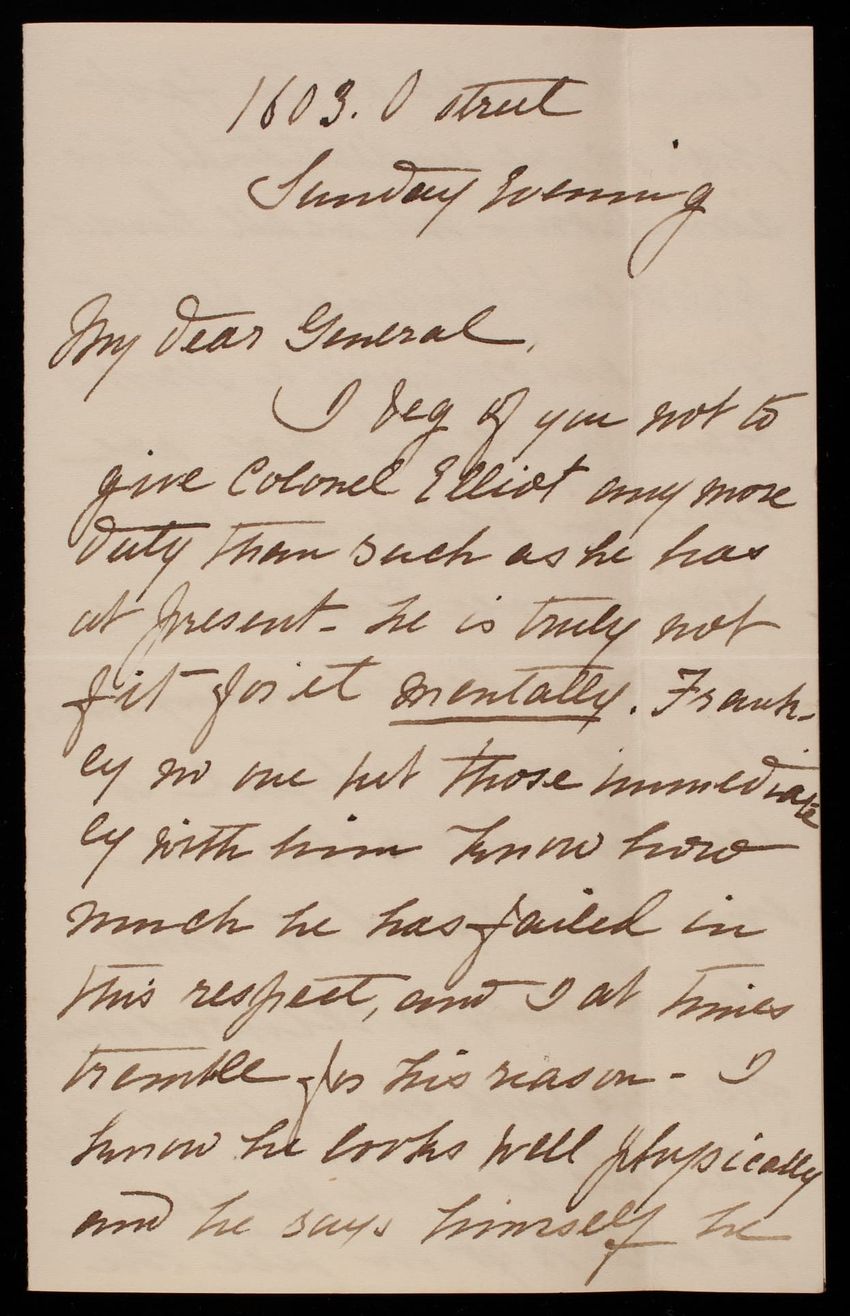 1603. O street
Sunday Evening
My dear General,
I beg of you not to
give Colonel Elliot any more
duty than such as he has
at present - he is truly not
fit for it mentally. Frank-
ly no one but those immediate
ly with him know how
much he has failed in
this respect, and I at times
tremble for his reason - I
know he looks well physically
and he says himself he